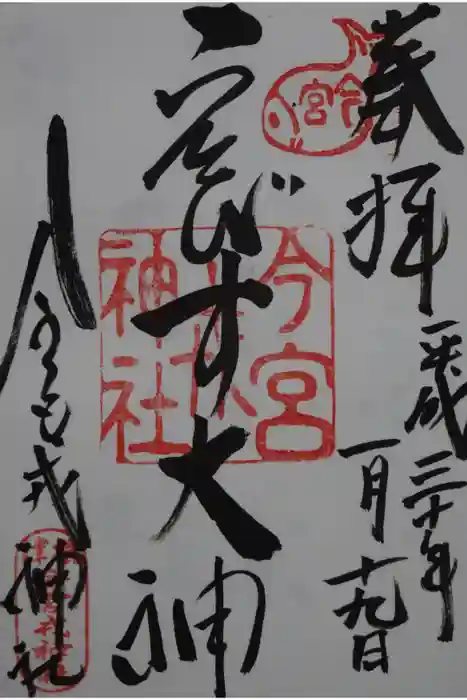 奉拝
平成三十年
一月十九日
今宮
ゑびす大神
今宮
神社
今宮戎神社